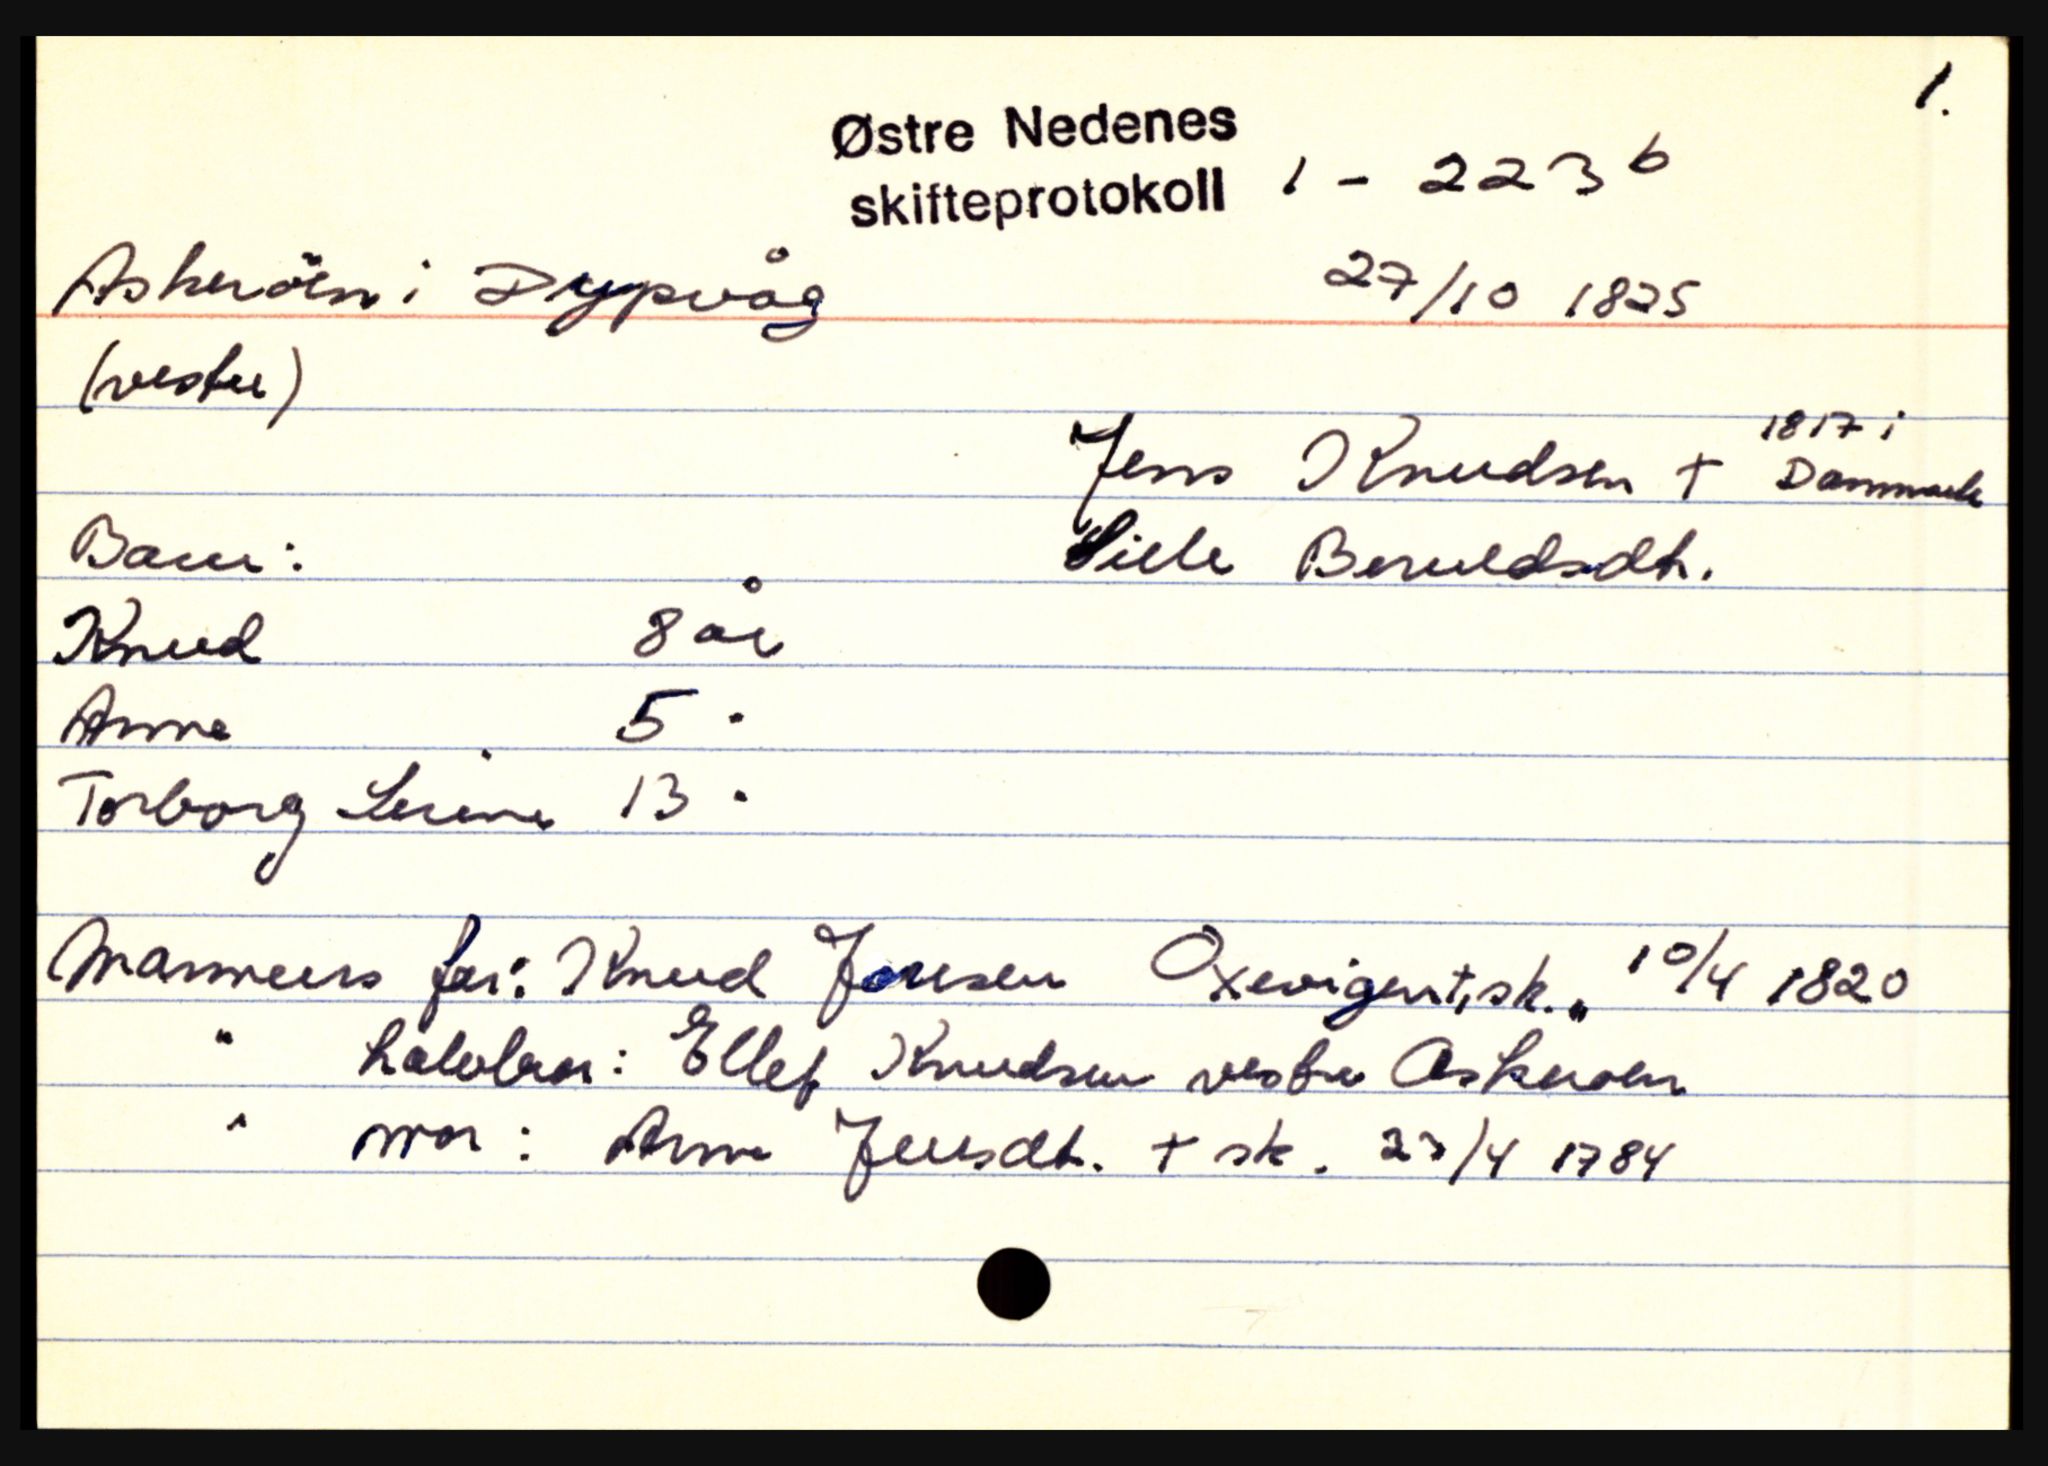 1.
Østre Nedenes
skifteprotokoll 1 - 223 b
Askerøen i Dypvåg 27/10 1825
(vestre)
Jens Knudsen + 1817 i Danmark
Sille Beruldsdt.
Barn:
Knud 8 år
Anne 5 "
Torborg Serine 13 "
Mannens far: Knud Jensen Oxevigen +, sk. 10/4 1820
" halvbror: Ellef Knudsen vestre Askerøen
" mor: Anne Jensdt. + sk. /4 1784